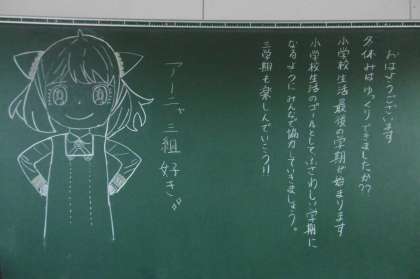 おはようございます
冬休みはゆっくりできましたか??
小学校生活最後の学期が始まります
小学校生活のゴールとしてふさわしい学期に
なるようにみんなで協力していきましょう。
三学期も楽しんでいこう!!
アーニャ三組好き。